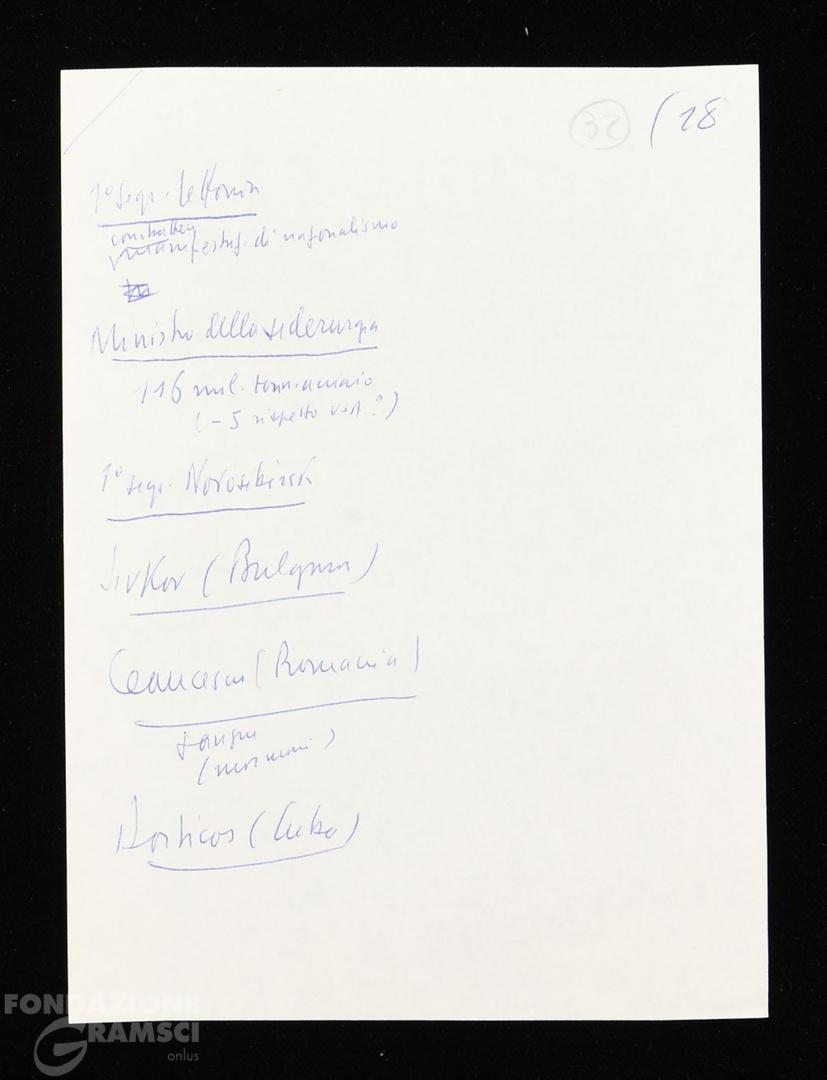 32
(18
1° segr. Lettonia
combatten
manifestaz. di nazionalismo
Ministro della siderurgia
116 mil. tonn. acciaio
(-5 rispetto USA?)
1° segr. Novosibirsk
Jivkov (Bulgaria)
Ceaucescu (Romania)
(
Dorticos (Cuba)
FONDAZIONE
GRAMSCI
onlus